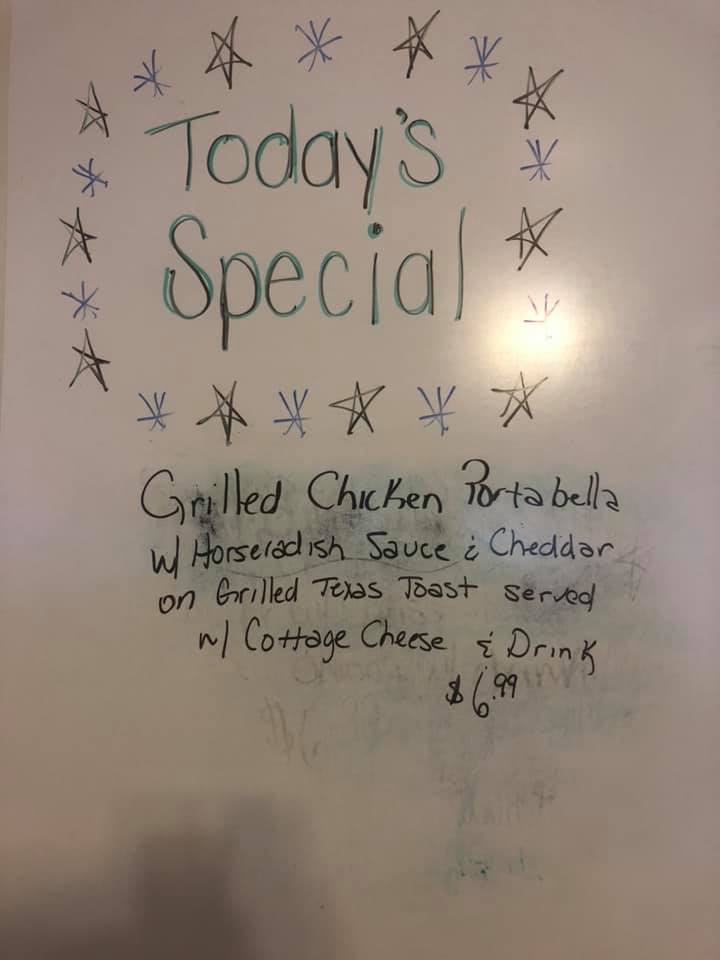 Today's
Special
Grilled Chicken Portabella
w/ Horseradish Sauce & Cheddar
on Grilled Texas Toast served
w/ Cottage Cheese & Drink
$6.99